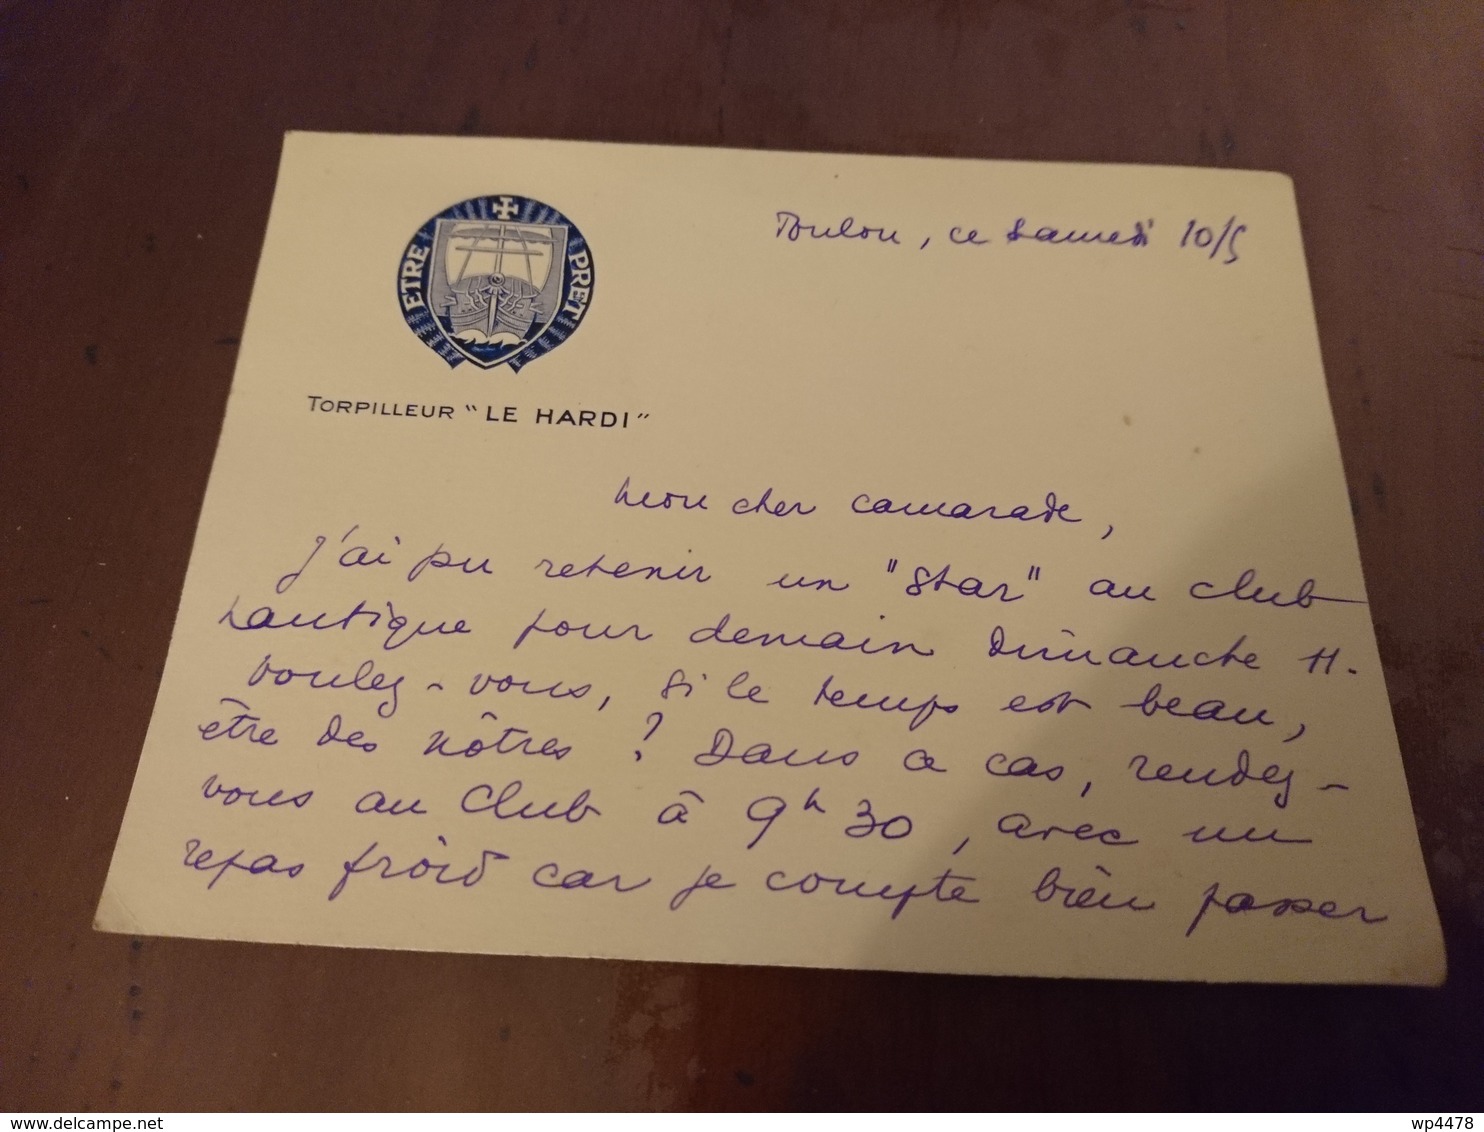 ETRE PRET
TORPILLEUR "LE HARDI"
Toulon, ce samedi 10/5
Mon cher camarade,
J'ai pu retenir un "Star" au Club
nautique pour demain Dimanche 11.
Voulez-vous, si le temps est beau,
être des nôtres ? Dans ce cas, rendez-
vous au Club à 9h30, avec un
repas froid car je compte bien passer
www.delcampe.net
wp4478